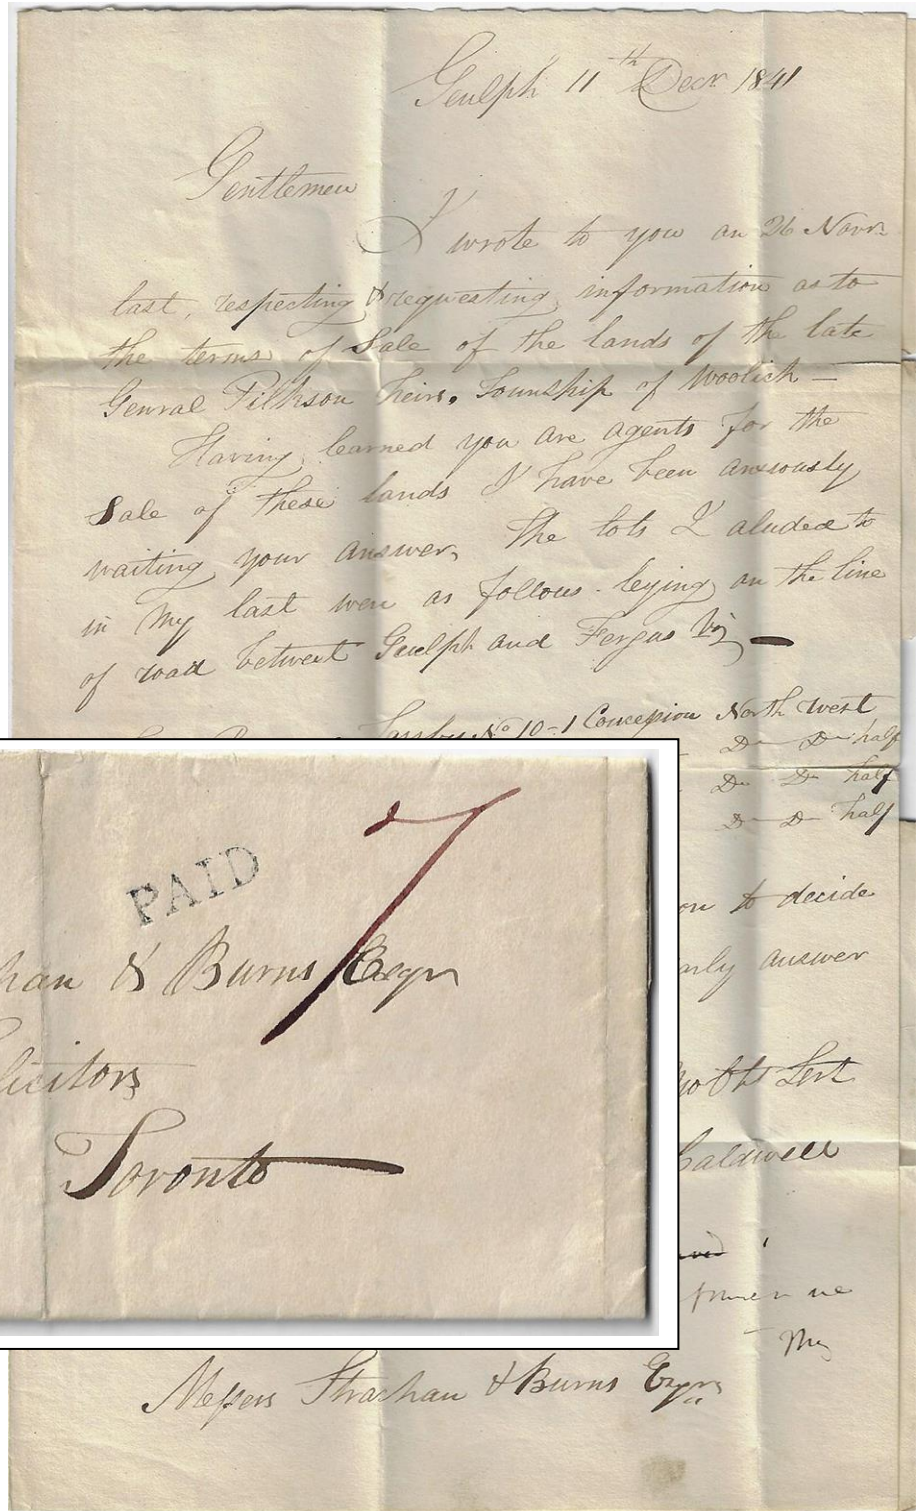 Guelph 11th Decr 1841
Gentlemen
I wrote to you an 26 Novr
last, respecting & requesting information as to
the terms of Sale of the lands of the late
Genral Pilkson heirs. Township of Woolich —
Having learned you are agents for the
Sale of these lands I have been anxiously
waiting your answer, The lots I aluded to
in My last were as follous. leying on the line
of road betweet Guelph and Fergus Viz —
No 10-1 Concepion North West
Do Do half
Do Do half
Do Do half
on to decide
arly answer
Obt Sert
Caldwell
me
My
Messrs Strachan & Burns Esqrs
PAID
7
han & Burns Esqrs
licitors
Toronto